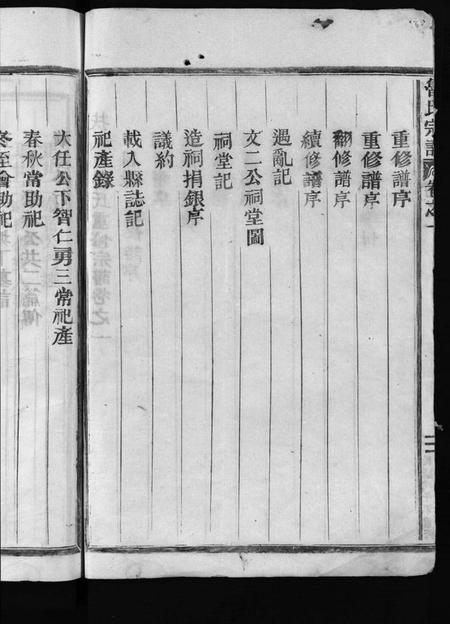 氏宗譜 卷之一
重修譜序
重修譜序
翻修譜序
續修譜序
遇亂記
文二公祠堂圖
祠堂記
造祠捐銀序
議約
載入縣誌記
祀產錄
大任公下智仁勇三常祀產
春秋常助祀
冬至會助祀